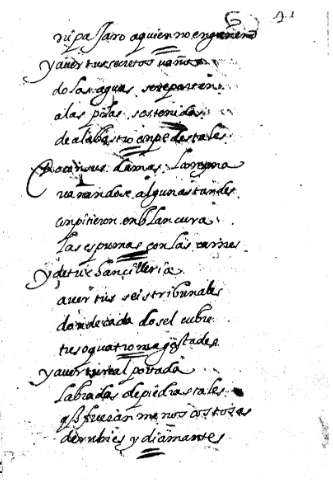 6 41
ni pa Jaro a quien no engañen
y aver tus secretos vaños
do las aguas se reparten
a las pilas sostenidas
de alabastro en pedestales
Do con sus damas la reyna
vanandose algunas tardes
conpitieron en blancura
las espumas con las carnes
y de tu chancilleria
a ver tus seis tribunales
donde cada dosel cubre
tres o quatro magestades
y aver tu real portada
labradas de piedras tales
q fueran menos costosas
de rubies y diamantes